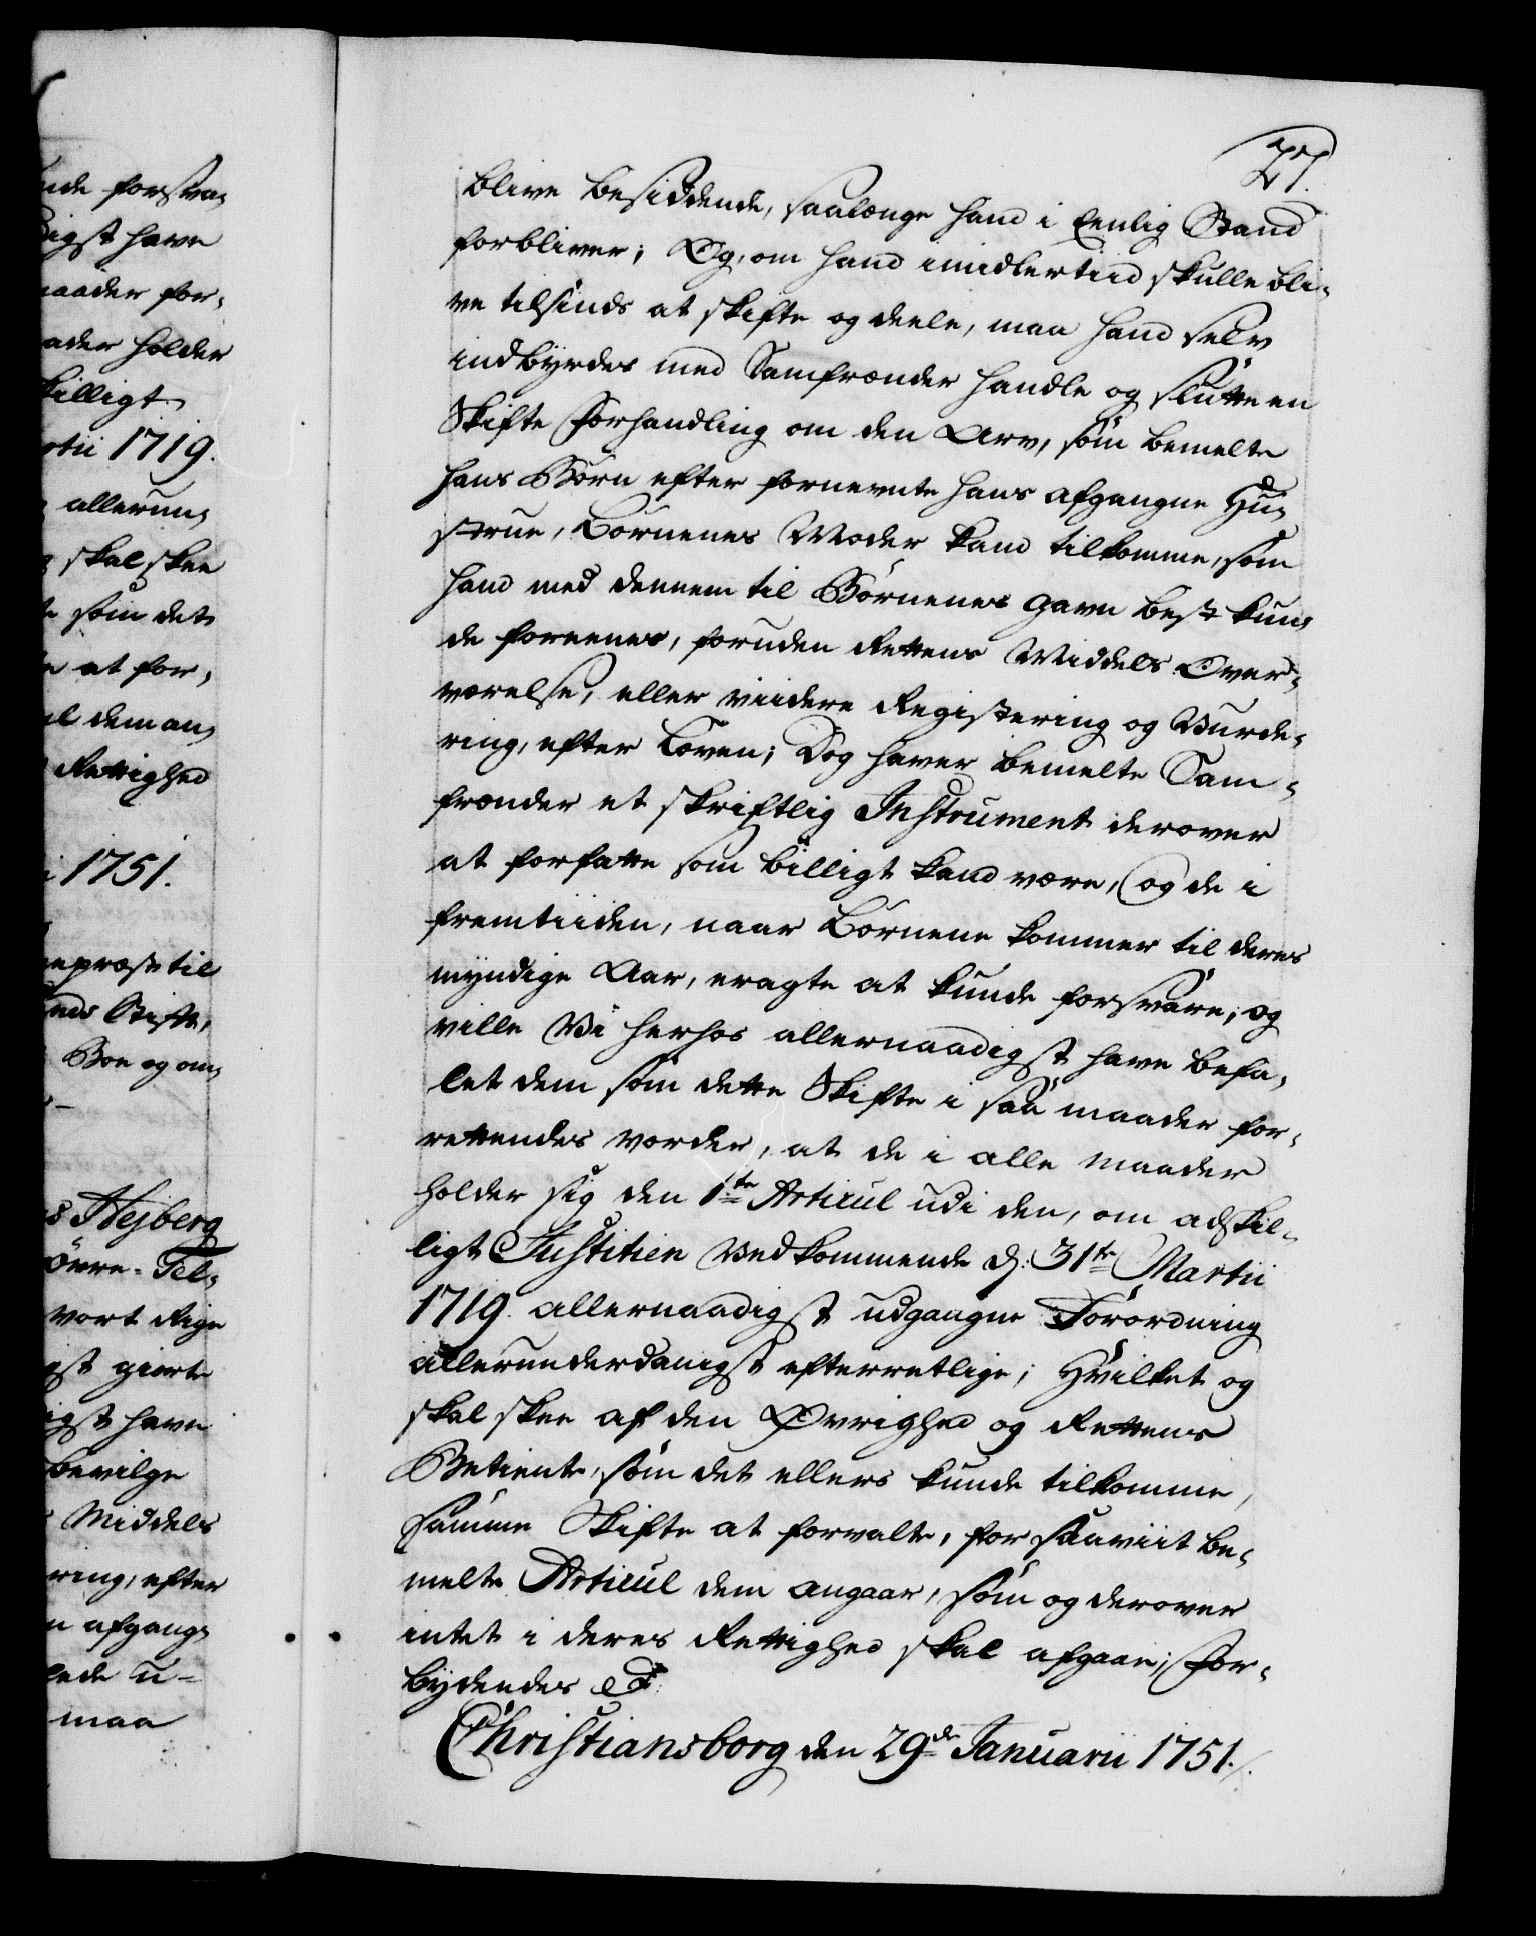 27.
blive besiddende, saalænge hand i Eenlig Stand
forbliver; Og, om hand imidlertiid skulle bli-
ve tilsinds at skifte og deele, maa hand selv
indbyrdes med Samfrænder handle og slutte en
Skifte Forhandling om den Arv, som bemelte
hans Børn efter fornevnte hans afgangne Hu-
strue, Børnenes Moder kand tilkomme, som
hand med dennem til Børnenes gavn best kun-
de foreenes, foruden Rettens Middels Over-
værelse, eller viidere Registering og Vurde-
ring, efter Loven; Dog haver bemelte Sam-
frænder et skriftlig Instrument derover
at forfatte som billigt kand være, og de i
fremtiiden, naar Børnene kommer til deres
myndige Aar, eragte at kunde forsvare; og
ville Vi herhos allernaadigst have befa-
let dem som dette Skifte i saa maader for-
rettendes vorder, at de i alle maader
holder sig den 1te Articul udi den, om adskil-
ligt Justitien Vedkommende d: 31te Martii
1719. allernaadigst udgangne Forordning
allerunderdanigst efterretlige; Hvilket og
skal skee af den Øvrighed og Rettens
Betiente, som det ellers kunde tilkomme,
samme Skifte at forvalte, for saaviit be-
melte Articul dem angaar, som og derover
intet i deres Rettighed skal afgaae; For-
bydendes etc:
Christiansborg den 29de Januarii 1751./.
nde forsva-
digst have
maader for-
ader holder
killigt
rtii 1719.
allerun-
skal skee
som det
at for-
al dem an-
Rettighed
1751.
epræst til
nds Stift,
Boe og om-
s Hejberg
Øvre-Tel-
vort Rige
gst giort
igst have
bevilge
Middels
ring, efter
n afgang-
lede u-
maa